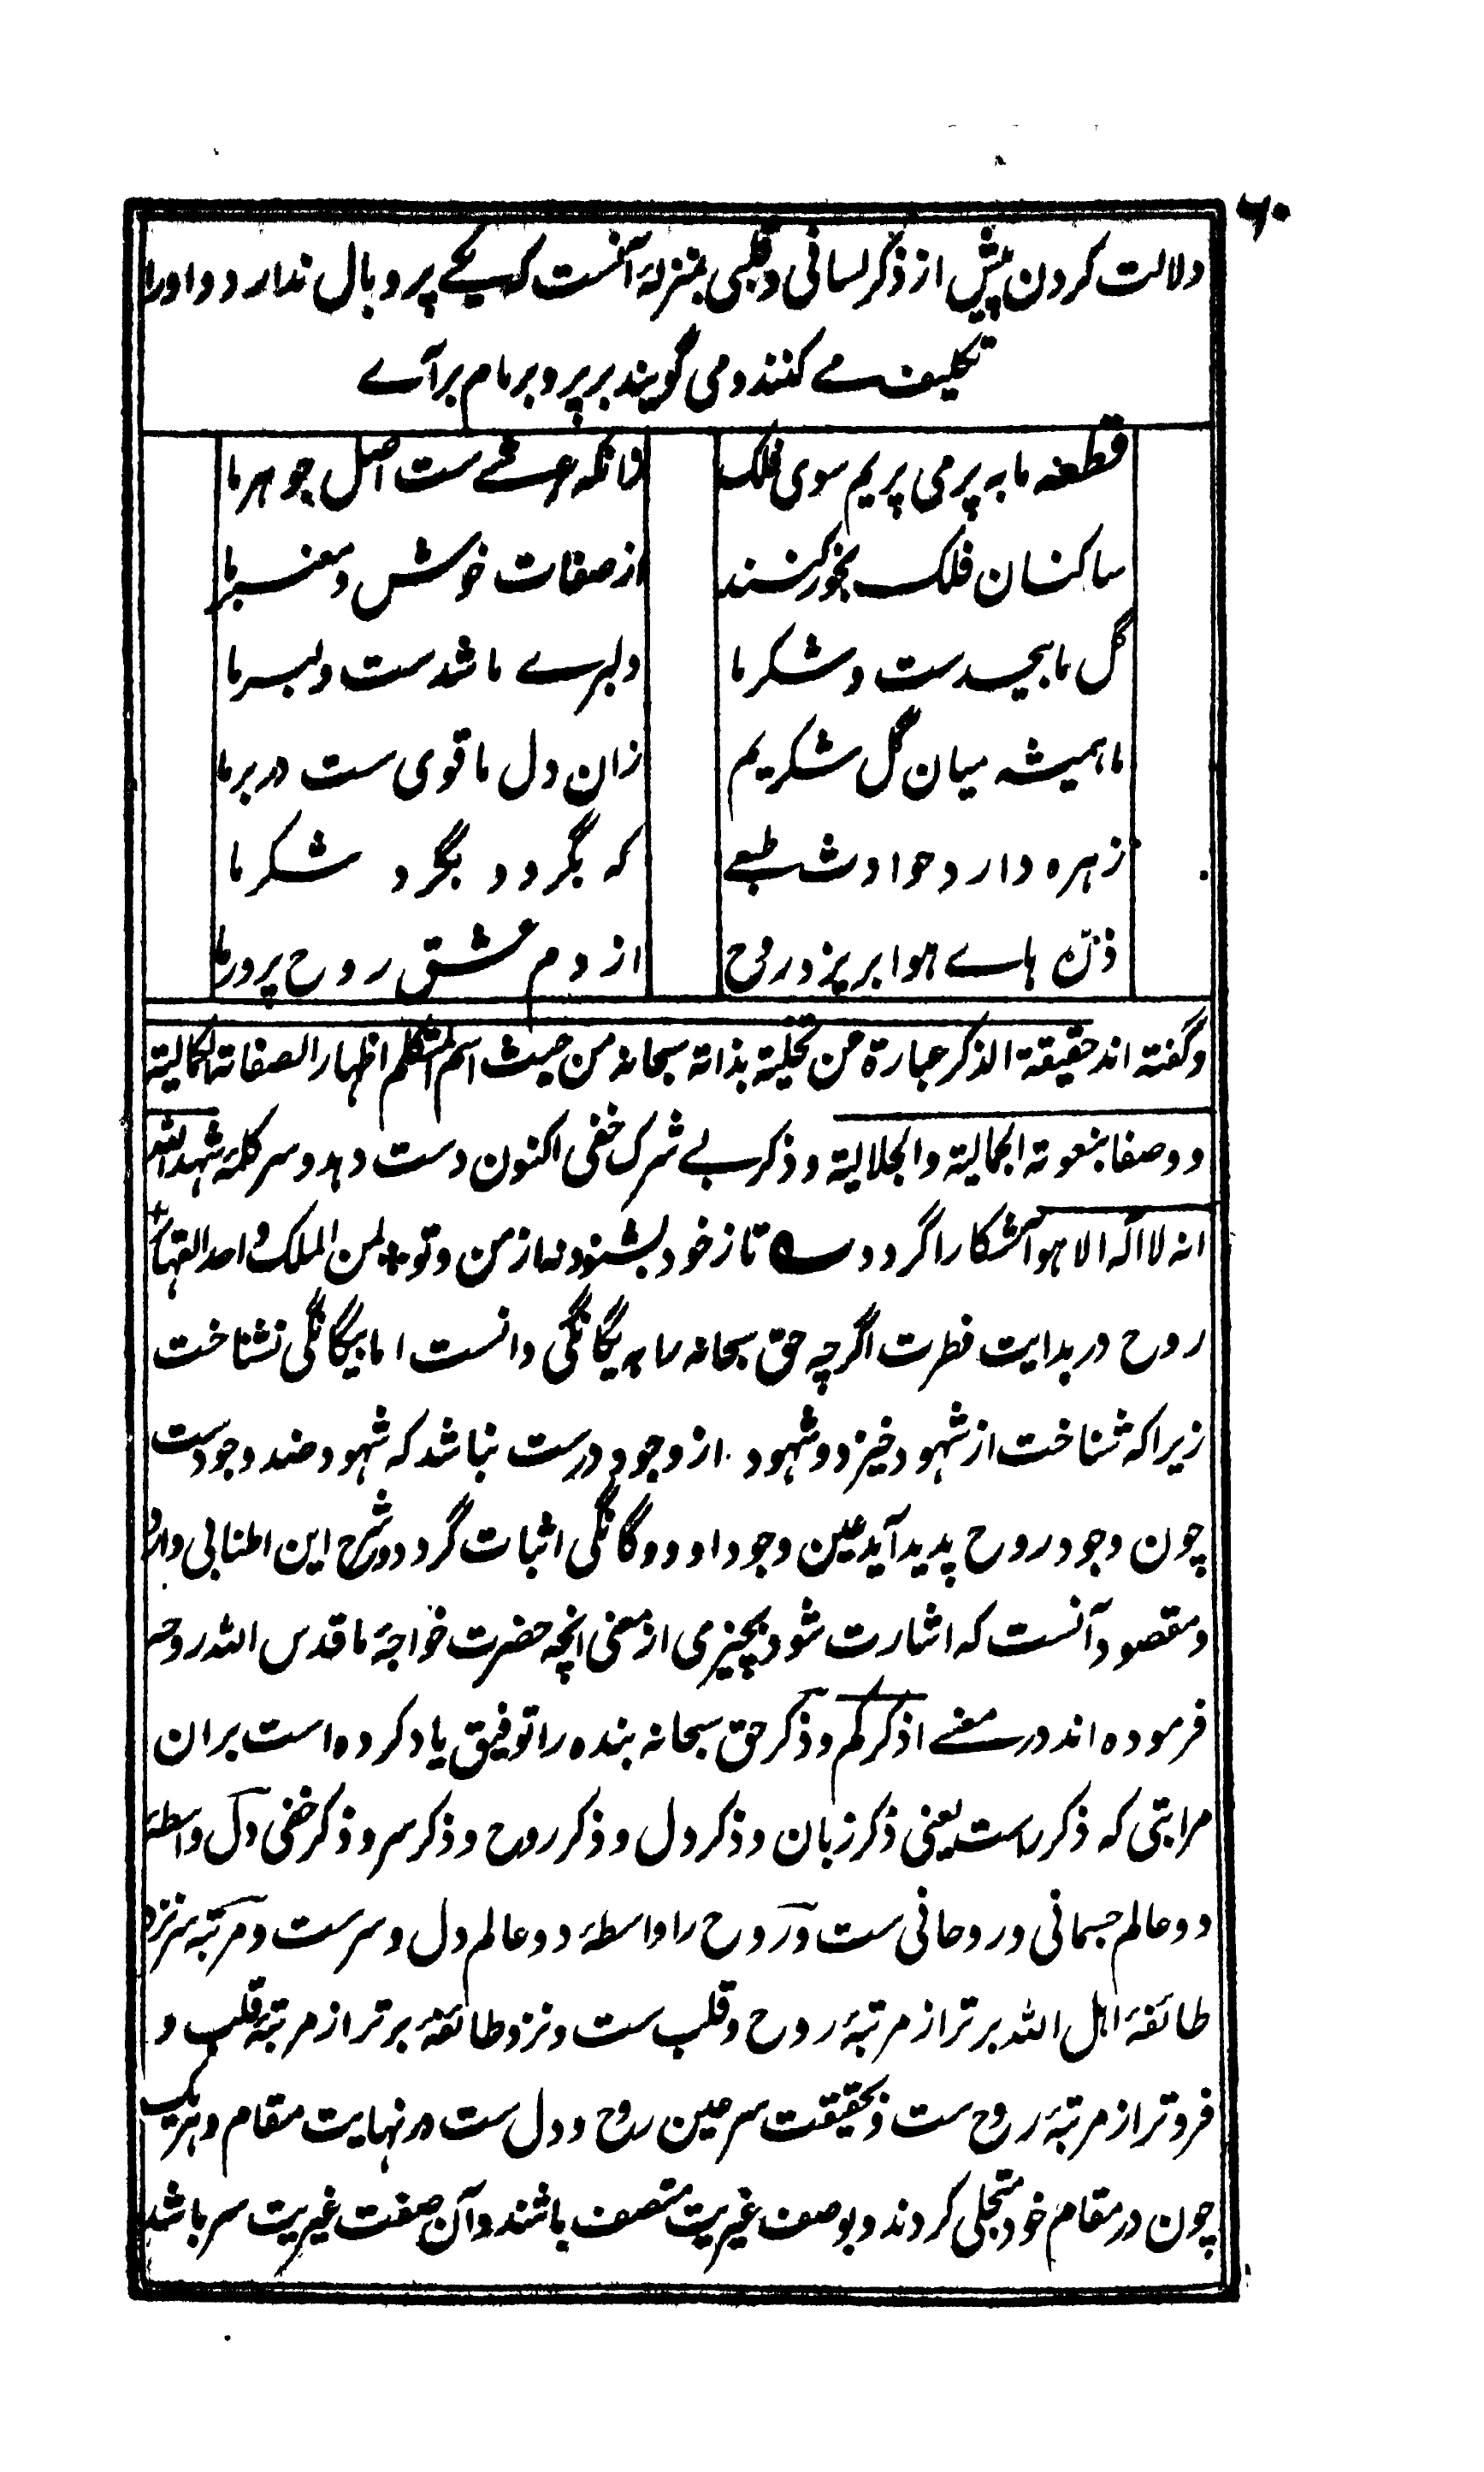 ۶۰
دلالت کردن پیش از ذکر لسانی و قلبی بمنزلۀ آنست که یکے پر و بال ندارد و او را
تکلیف مے کنند و می گویند بر پر و بر بام برآے
قطعہ ما بہ پر می پریم سوی فلک
زانکہ عرشے ست اصل جوہر ما
ساکنان فلک بخور کنند
از صفات خوش و معنبر ما
گل ما بیحد ست و شکر ما
دلبرے ما شد ست دلبر ما
ما ہمیشہ میان گل شکریم
زان دل ما قوی ست در بر ما
زہرہ دارد حوادث طبعے
کہ بگردد بگرد شکر ما
ذرہ ہاے ہوا پریزد روح
از دم عشق روح پرور ما
و گفتہ اند حقیقة الذکر عبارة عن تجلیۃ بذاتہ سبحانہ من حیث اسم المتکلم اظہار الصفاتہ الکمالیۃ
و وصفا بنعوتہ الجمالیۃ والجلالیۃ و ذکر بے شرک خفی اکنون دست دہد و سر کلمۀ شہد اللہ
انہ لا الہ الا ہو آشکارا گردد ے تا ز خود بشنود نہ از من و تو + لمن الملک واحد القہار +
روح در بدایت فطرت اگرچہ حق سبحانہ را بہ یگانگی دانست اما بیگانگی نشناخت
زیرا کہ شناخت از شہود خیزد و شہود از وجود درست نباشد کہ شہود ضد وجودست
چون وجود روح پدید آید عین وجود او دوگانگی اثبات گردد و شرح این اطنابی دارد
و مقصود آنست کہ اشارت شود بچیزی از معنی انچہ حضرت خواجۀ ما قدس اللہ روحہ
فرمودہ اند در معنے اذکرکم و ذکر حق سبحانہ بندہ را توفیق یاد کردہ است بران
مراتبی کہ ذکر راست یعنی ذکر زبان و ذکر دل و ذکر روح و ذکر سر و ذکر خفی و دل واسطۀ
دو عالم جسمانی و روحانی ست و روح را واسطۀ دو عالم دل و سرست و مرتبۀ سر نزد
طائفۀ اہل اللہ برتر از مرتبۀ روح و قلب ست و نزد طائفۀ برتر از مرتبۀ قلب و
فروتر از مرتبۀ روح ست و بحقیقت سر عین روح و دل ست در نہایت مقام و ہر یک
چون در مقام خود متجلی کردند و بوصف غیریت متصف باشند و آن صفت غیریت سر باشد